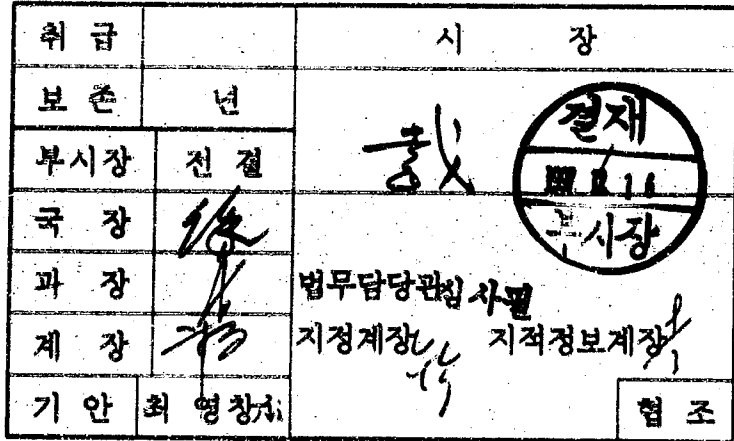 취급 시장
보존 년
결재
부시장 전결
16
부시장
국장
과장 법무담당관심사필
계장 지정계장 지적정보계장
기안 최영창 협조